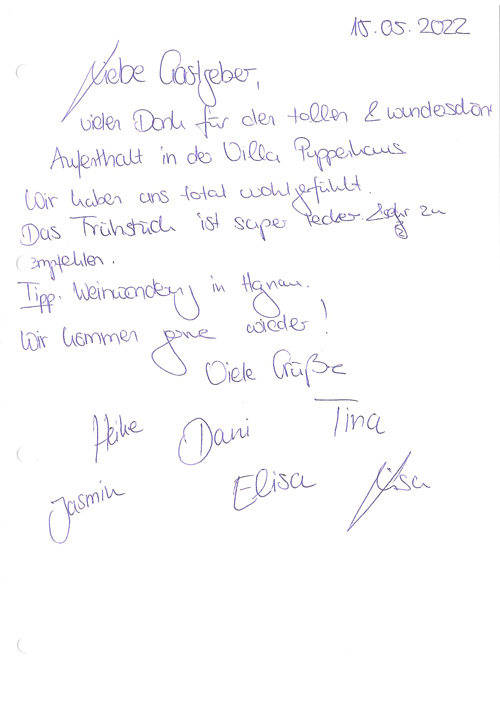 15.05.2022
Liebe Gastgeber,
vielen Dank für den tollen & wunderschönen
Aufenthalt in der Villa Puppenhaus
Wir haben uns total wohlgefühlt.
Das Frühstück ist super lecker. Sehr zu
empfehlen.
Tipp. Weinwanderung in Hagnau.
Wir kommen gerne wieder!
Viele Grüße
Heike Dani Tina
Jasmin Elisa Lisa